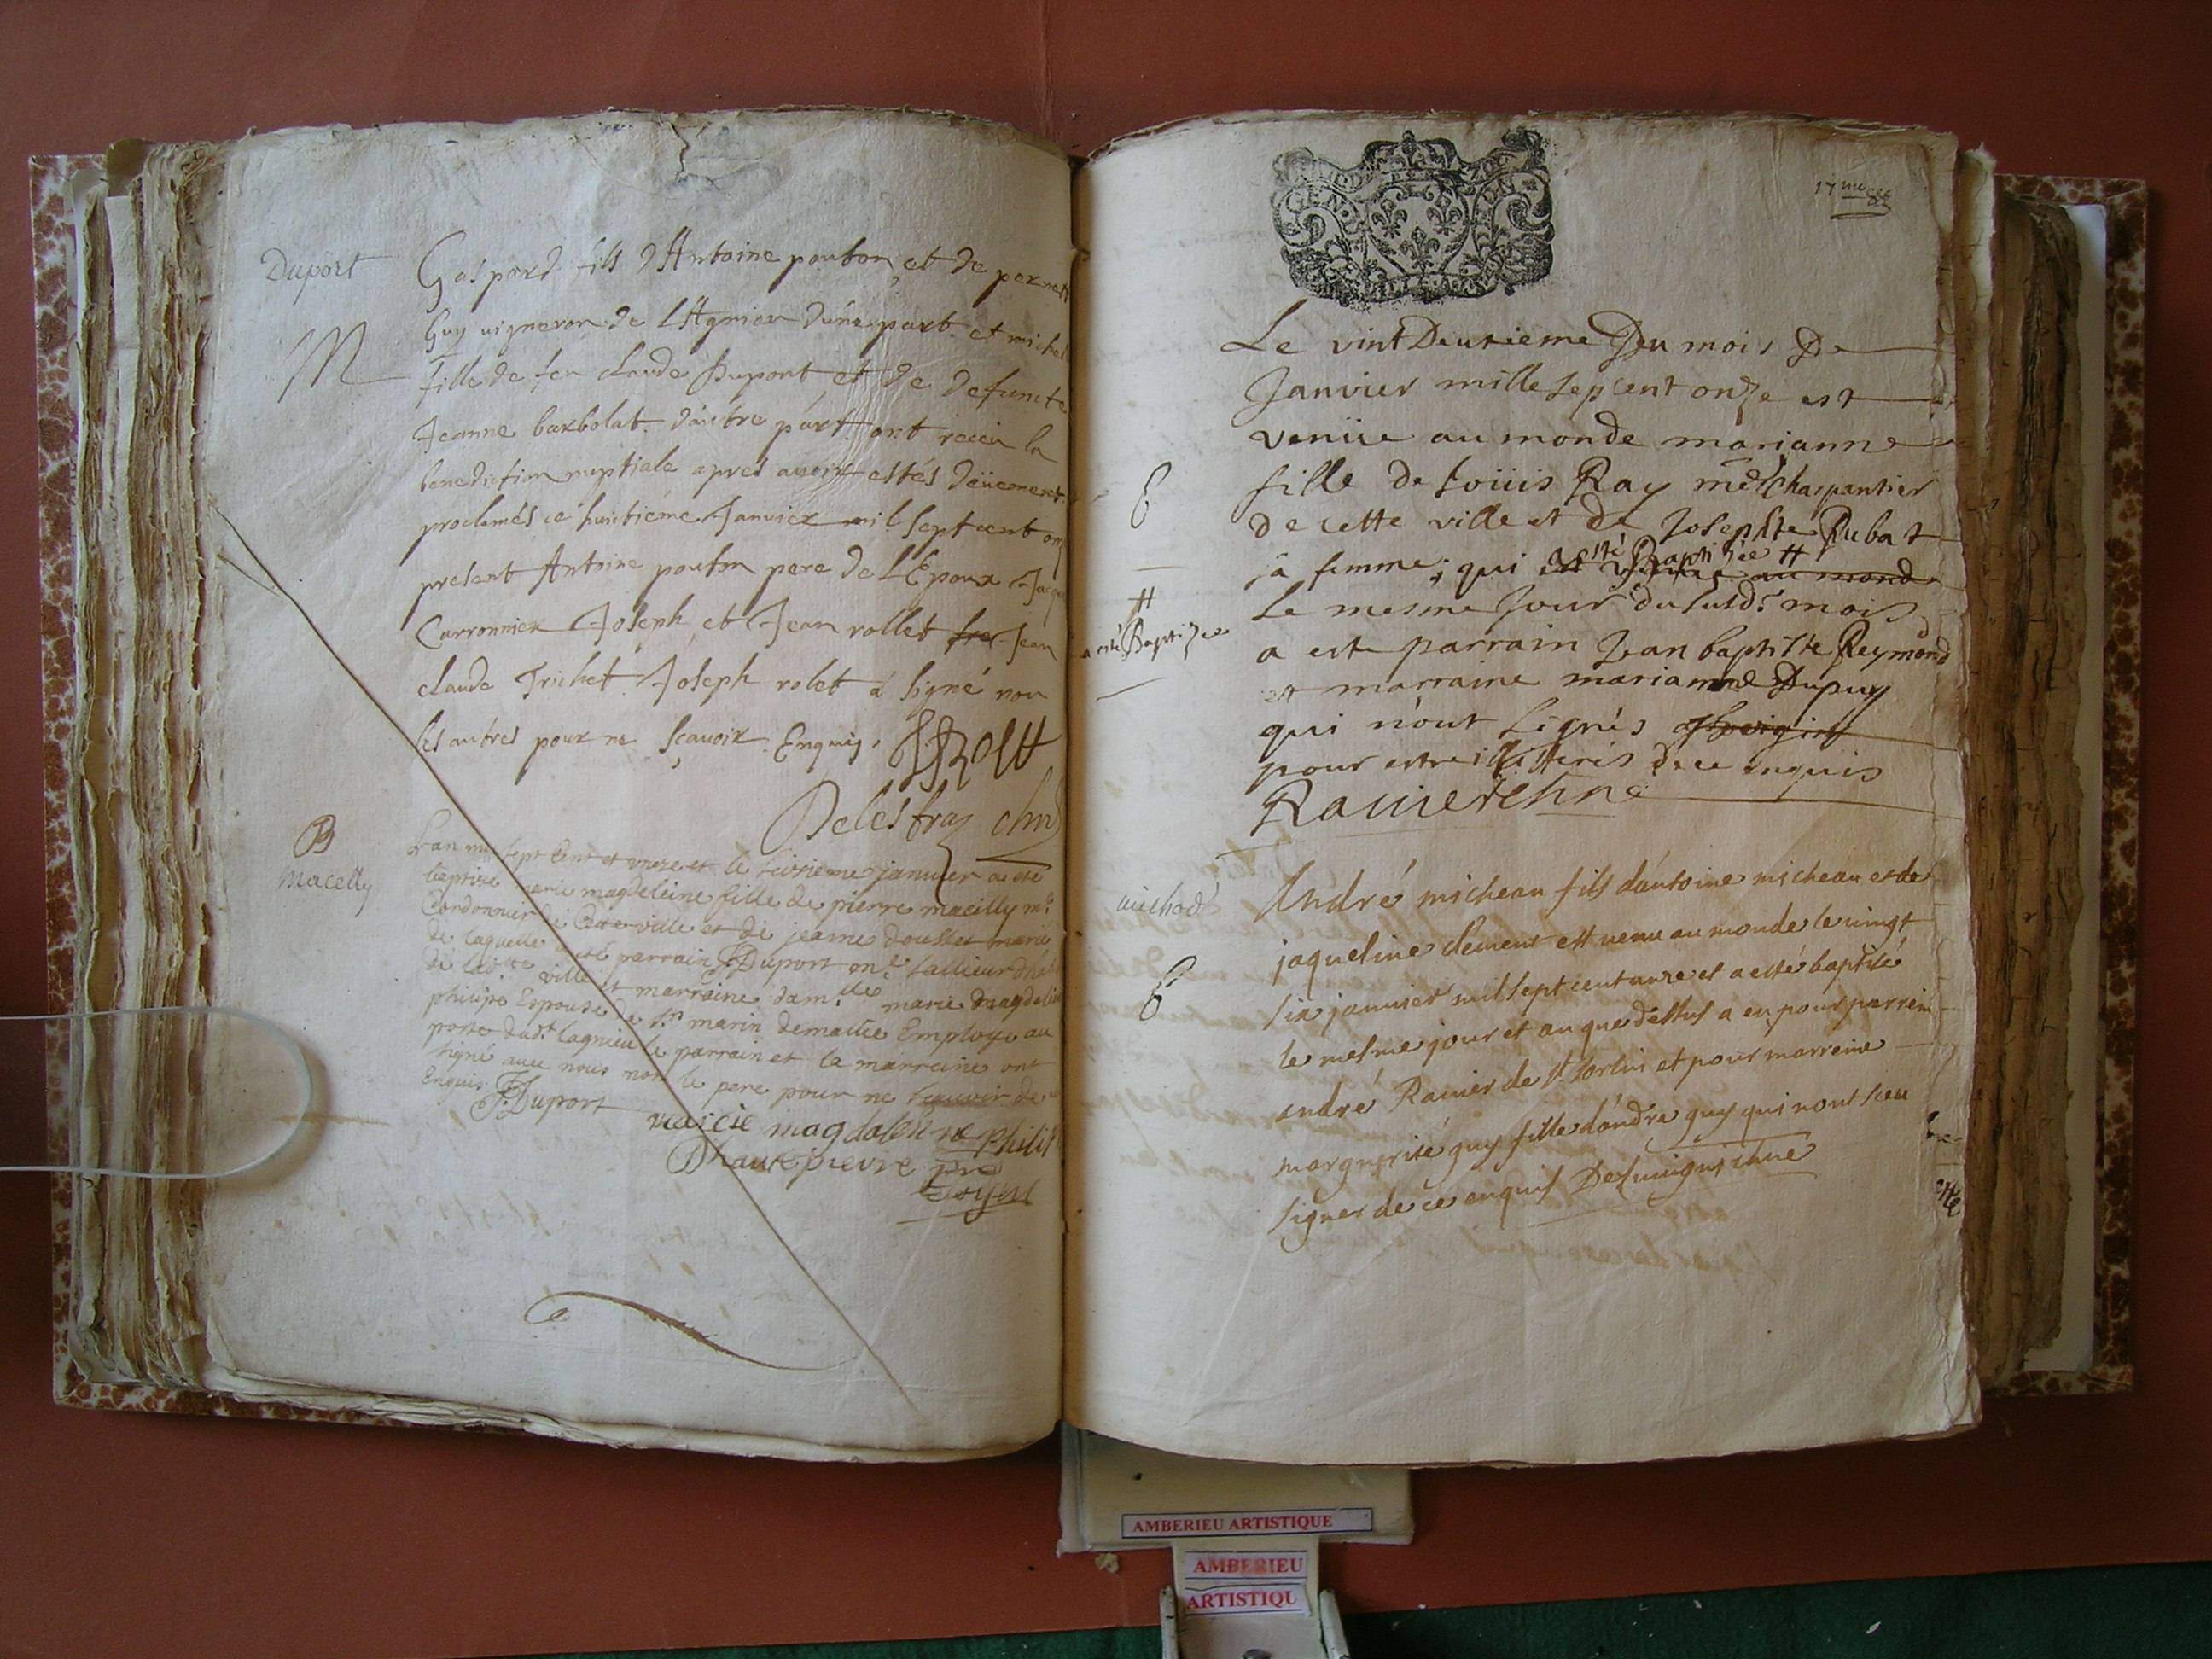 Duport
M
Gaspard fils d'Antoine pouton et de pernett
Guy uigneron de l'Agnieu d'une part et michel
fille de feu claude Duport et de defuncte
Jeanne barbolat d'autre part ont receu la
benediction nuptiale apres auoir estés düement
proclamés ce huictième Janvier mil sept cent onz
present Antoine pouton pere de l'Epoux Jacque
Carronnier Joseph et Jean rollet frer Jean
claude Trichet Joseph rolet a signé non
les autres pour ne sçauoir Enquis. JJRolett
Delestraz
B
Macelly
L'an mil sept cent et unze et le sixsieme januier a esté
baptise marie magdeleine fille de pierre macilly mre
Cordonnier de Cette ville et de jeanne dousset marié
de laquelle a esté parrain J Duport tallieur d'ha
de ladtte ville et marraine damlle marie magdelin
philipe Espouse de Sr marin demattie Employe au
poste dudt lagnieu le parrain et la marraine ont
signé auec nous non le pere pour ne scauoir de
Enquis J. Duport
marie magdaleine Philip
Dhautepierre pre
17me
Le vint Deuxieme Du mois De
Janvier mille sepcent onze est
venüe au monde marianne
E
fille de Loüis Ray me Charpantier
de cette ville et de Josephte Rubat
sa femme, qui a esté Baptizée # est venue au monde
#
a esté Baptizée
Le mesme Jour du susdt mois
a este parrain Jean baptiste Reymond
et marraine marianne Dupuy
qui n'ont signés
pour estre illitterés de ce enquis
Rauier
michod
André micheau fils d'antoine micheau et de
jaqueline clement est uenu au monde le uingt
6
six januier mil sept cent onze et a esté baptisé
le mesme jour et an que dessus a eu pour parrein
andré Rauier de st sorlin et pour marreine
marguerite guy fille d'andré guy qui n'ont sceu
signer de ce enquis
AMBERIEU ARTISTIQUE
AMBERIEU
ARTISTIQU